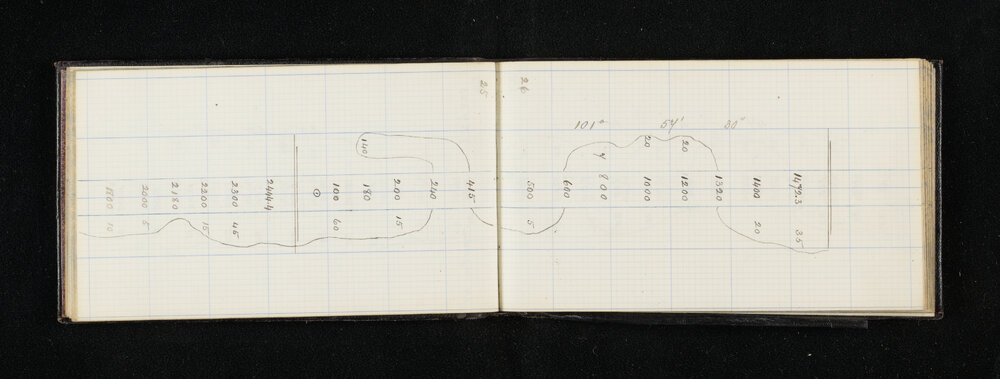 101° 54' 30"
1472.3 35
1400 20
1320
20 1200
20 1000
7 800
600
500 5
26
25
415
240
200 15
140 180
100 60
⊙
2444.4
2300 45
2200 15
2180
2000 5
1800 10